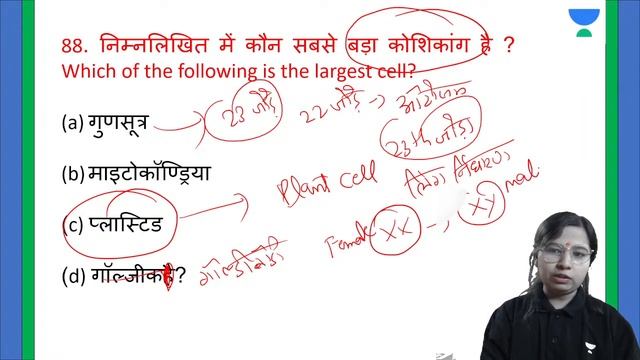 88. निम्नलिखित में कौन सबसे बड़ा कोशिकांग है ?
Which of the following is the largest cell?
(a) गुणसूत्र 23 जोड़े 22 जोड़े → ऑटोजोम
23th जोड़ा
(b) माइटोकॉण्ड्रिया
Plant cell लिंग निर्धारण
(c) प्लास्टिड
Female XX → XY male
(d) गॉल्जीकहै? गॉल्जीबॉडी